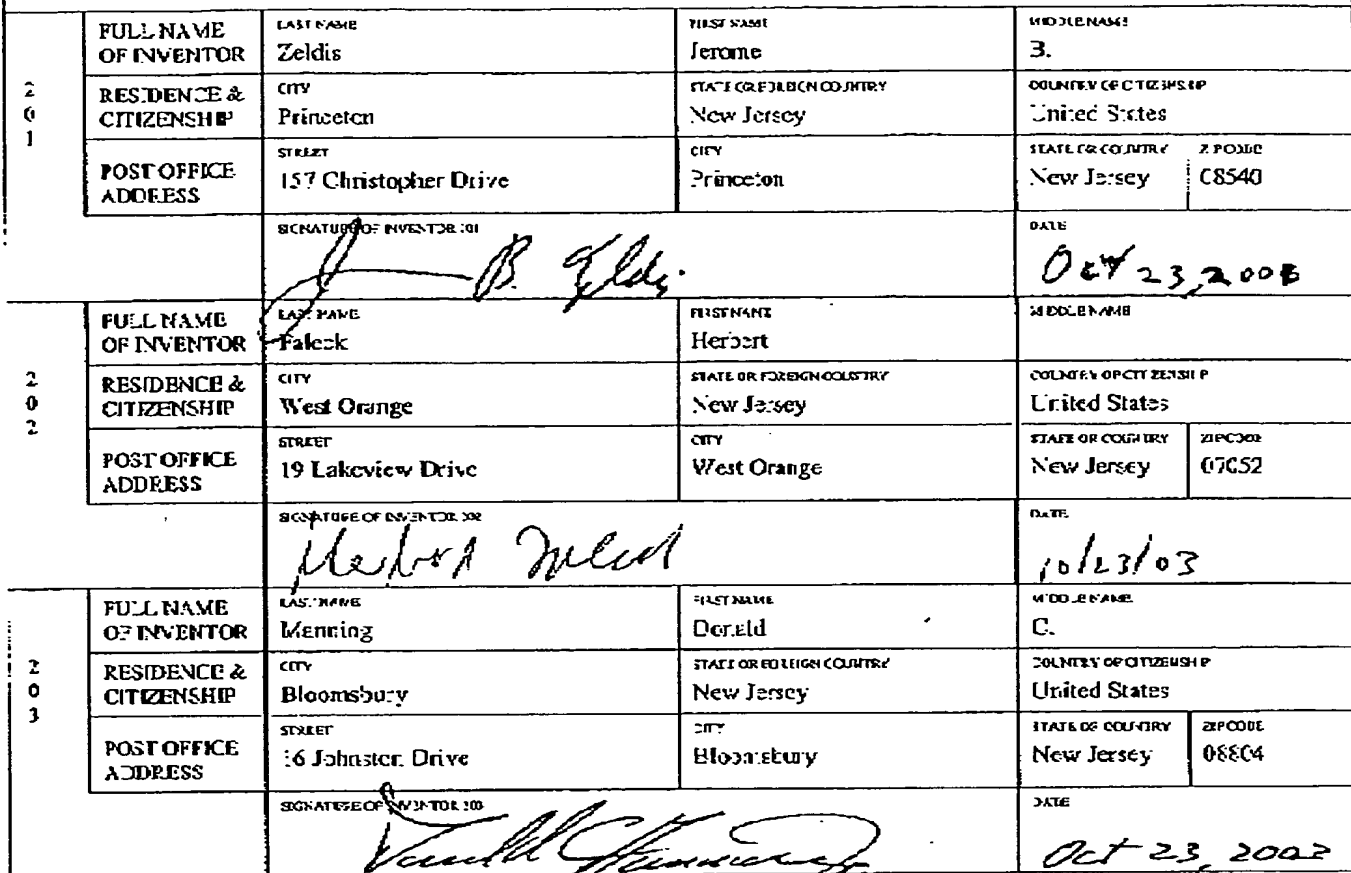 FULL NAME OF INVENTOR
LAST NAME
Zeldis
FIRST NAME
Jerome
MIDDLE NAME
B.
201
RESIDENCE & CITIZENSHIP
CITY
Princeton
STATE OR FOREIGN COUNTRY
New Jersey
COUNTRY OF CITIZENSHIP
United States
POST OFFICE ADDRESS
STREET
157 Christopher Drive
CITY
Princeton
STATE OR COUNTRY
New Jersey
ZIPCODE
08540
SIGNATURE OF INVENTOR 201
J B. Zeldis
DATE
Oct 23, 2003
FULL NAME OF INVENTOR
LAST NAME
Faleck
FIRST NAME
Herbert
MIDDLE NAME
202
RESIDENCE & CITIZENSHIP
CITY
West Orange
STATE OR FOREIGN COUNTRY
New Jersey
COUNTRY OF CITIZENSHIP
United States
POST OFFICE ADDRESS
STREET
19 Lakeview Drive
CITY
West Orange
STATE OR COUNTRY
New Jersey
ZIPCODE
07052
SIGNATURE OF INVENTOR 202
Herbert Faleck
DATE
10/23/03
FULL NAME OF INVENTOR
LAST NAME
Manning
FIRST NAME
Donald
MIDDLE NAME
C.
203
RESIDENCE & CITIZENSHIP
CITY
Bloomsbury
STATE OR FOREIGN COUNTRY
New Jersey
COUNTRY OF CITIZENSHIP
United States
POST OFFICE ADDRESS
STREET
16 Johnston Drive
CITY
Bloomsbury
STATE OR COUNTRY
New Jersey
ZIPCODE
08804
SIGNATURE OF INVENTOR 203
Donald C Manning
DATE
Oct 23, 2003